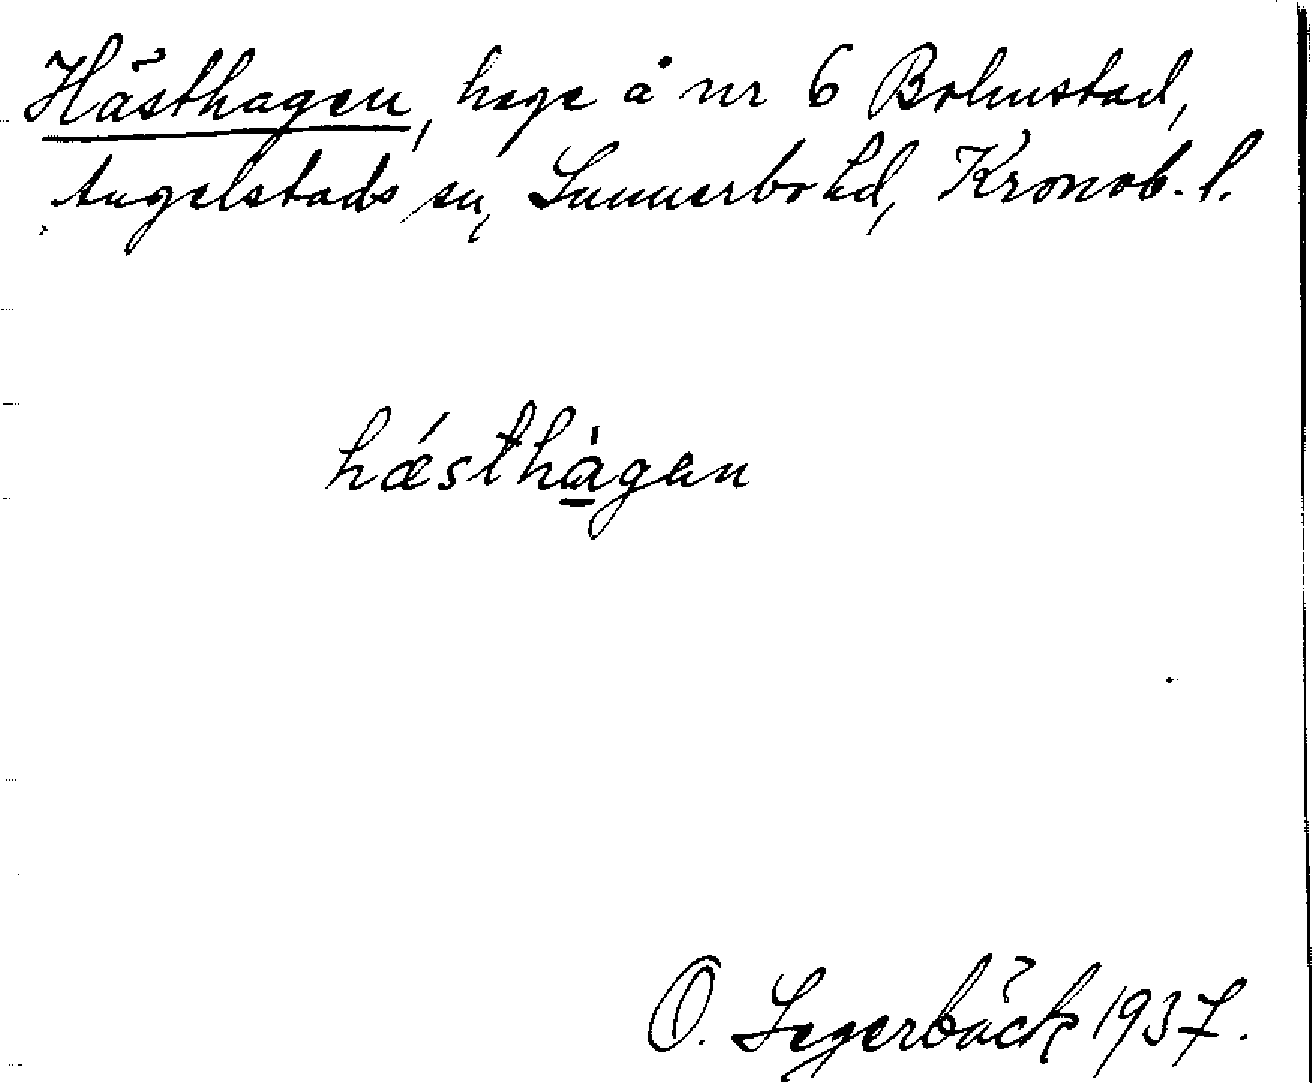 Hästhagen, hage å nr 6 Bolmstad,
Angelstads sn, Sunnerbo hd, Kronob. l.
hǽsthàgen
O. Segerbäck 1937.